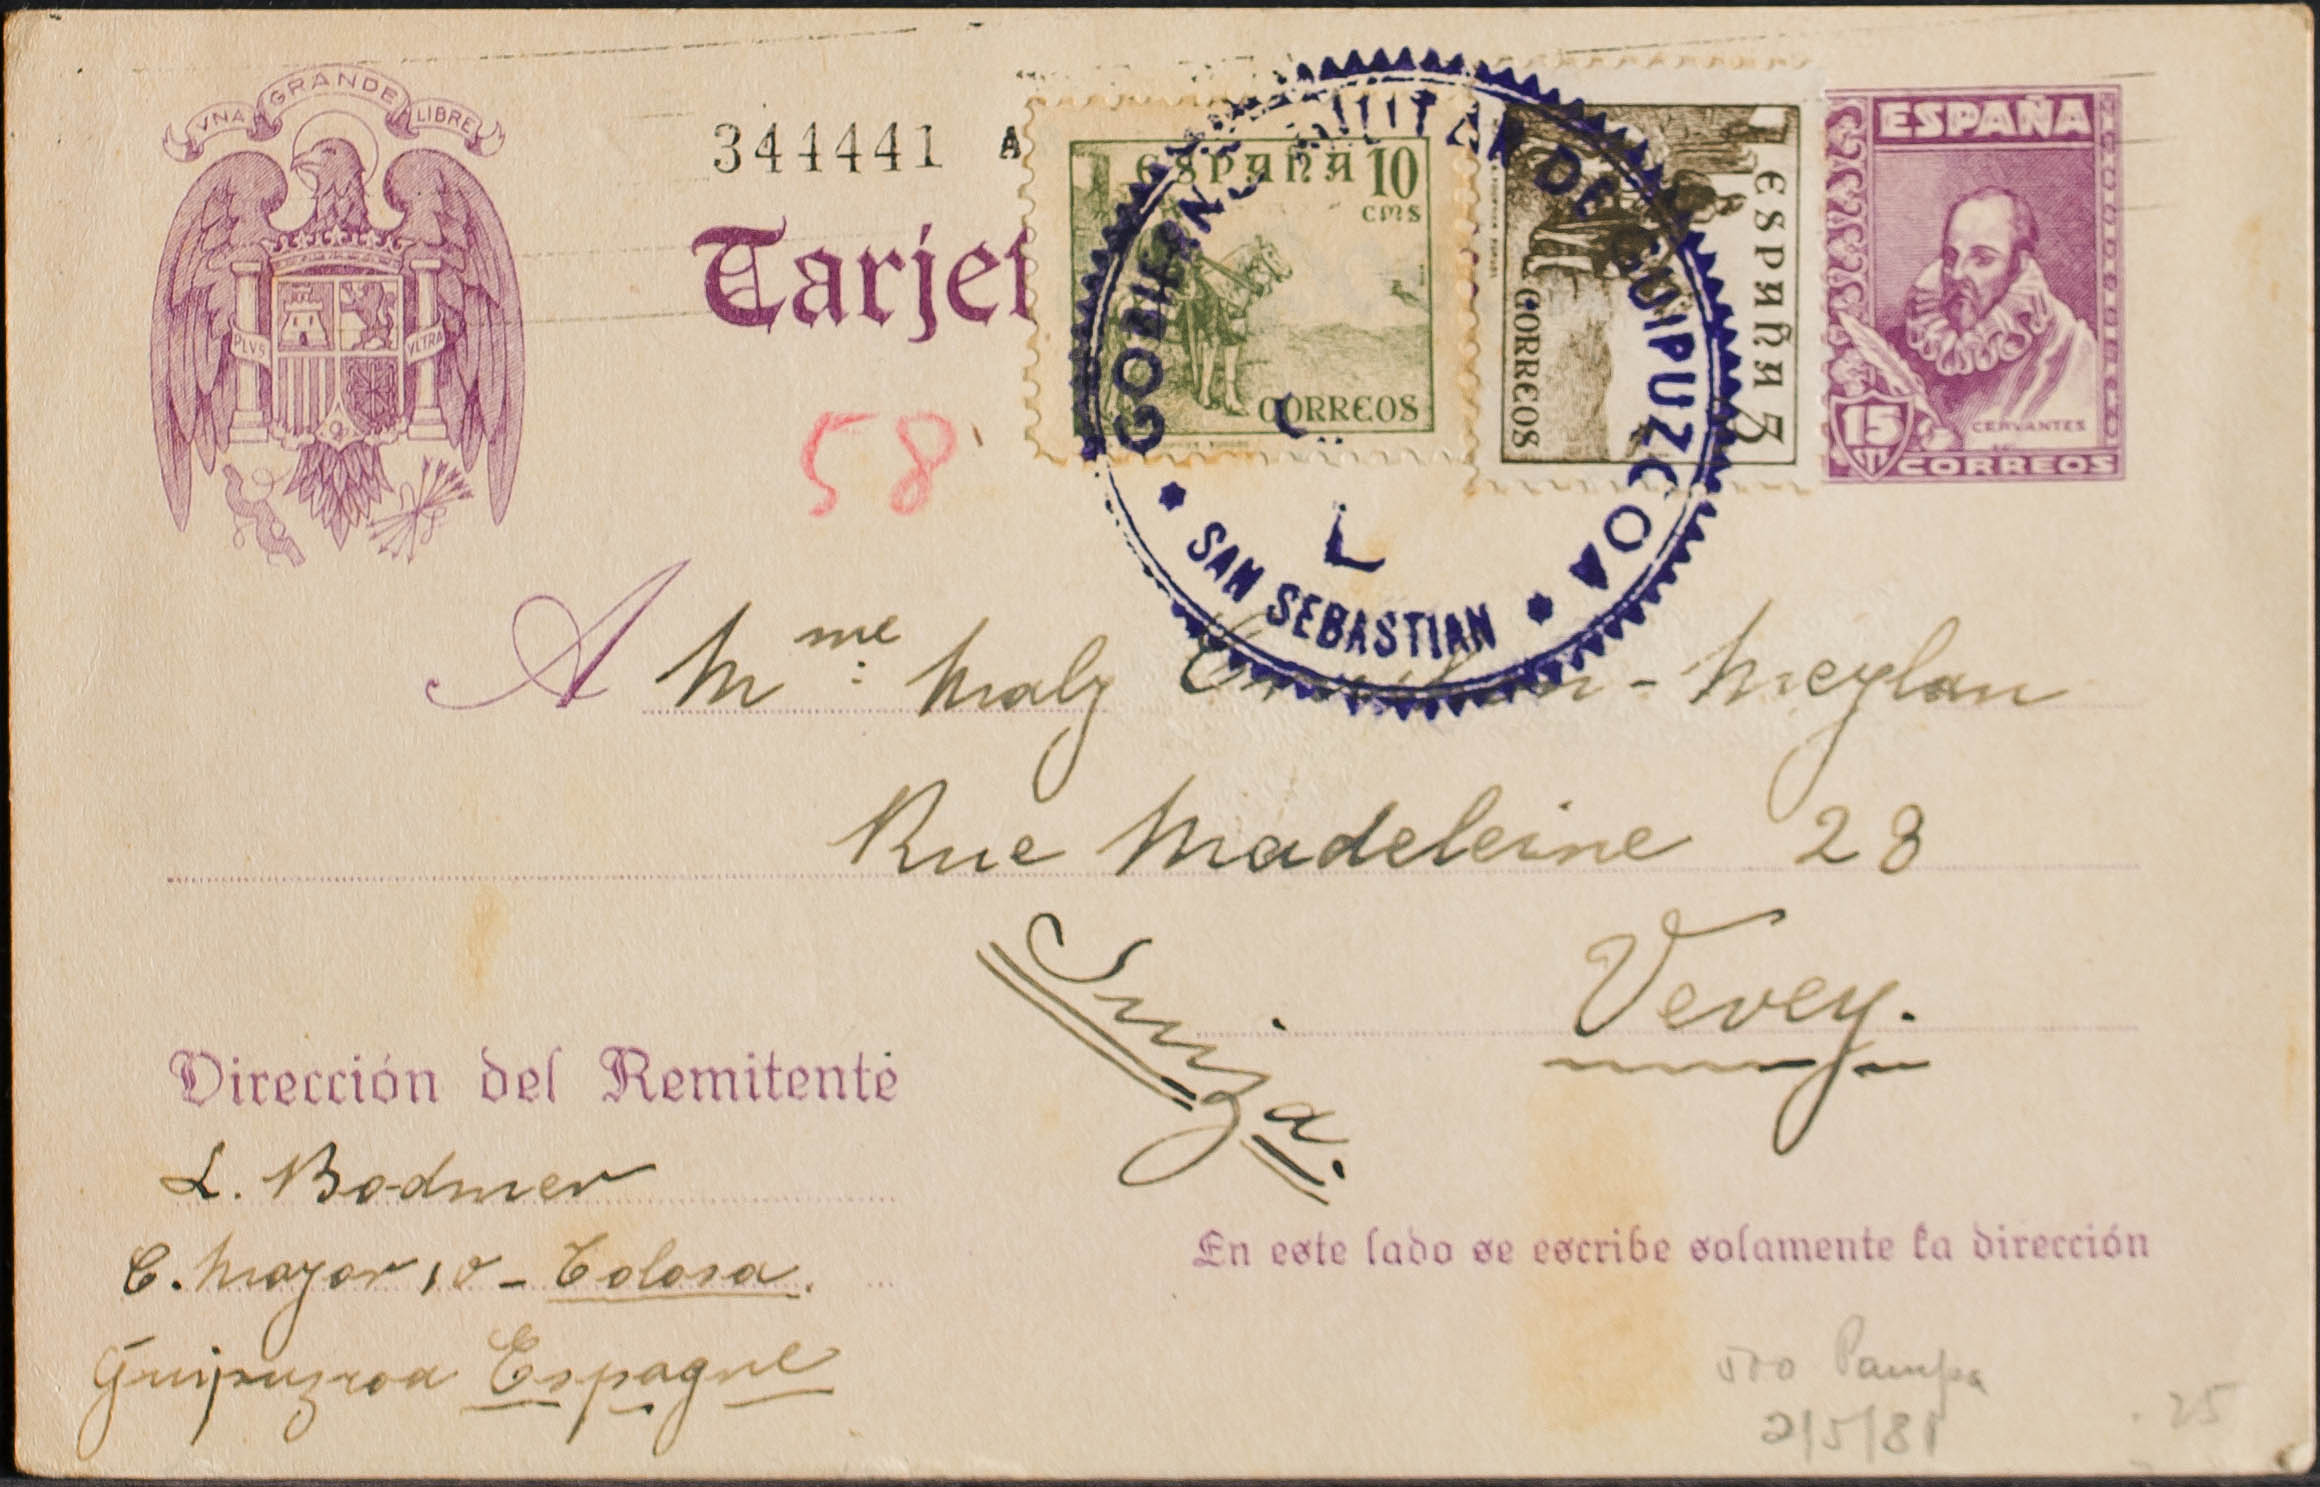 VNA GRANDE LIBRE
PLVS VLTRA
344441 A
Tarjet
58
ESPAÑA 10
CMS
CORREOS
ESPAÑA
CORREOS
ESPAÑA
15
CTS
CERVANTES
CORREOS
GOBIERNO MILITAR DE GUIPUZCOA
SAN SEBASTIAN
A Mme: Maly - Meylan
Rue Madeleine 28
Vevey.
Suiza.
Dirección del Remitente
L. Bodmer
C. Mayor 10 - Tolosa.
Guipuzcoa Espagne
En este lado se escribe solamente la dirección
500 Pampa
2/5/81
25